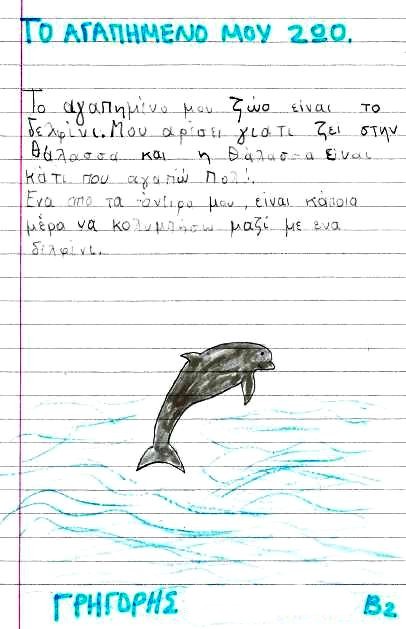 ΤΟ ΑΓΑΠΗΜΕΝΟ ΜΟΥ ΖΩΟ.
Το αγαπημένο μου ζώο είναι το
δελφίνι. Μου αρέσει γιατι ζει στην
θάλασσα και η θάλασσα είναι
κάτι που αγαπώ πολύ.
Ενα απο τα όνειρα μου, είναι κάποια
μέρα να κολυμπήσω μαζί με ενα
δελφίνι.
ΓΡΗΓΟΡΗΣ
Β2